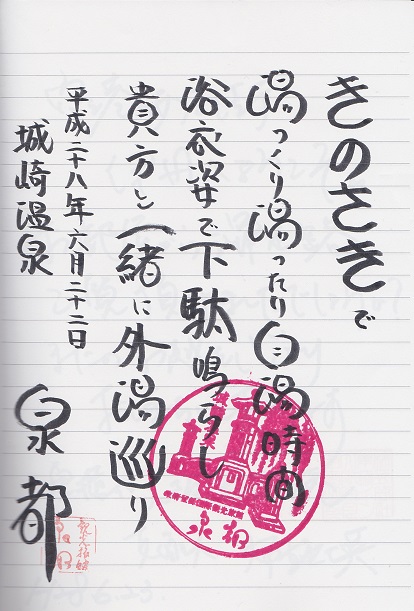 きのさきで
湯つくり湯ったり白湯時間
浴衣姿で下駄鳴らし
貴方と一緒に外湯巡り
平成二十八年六月二十二日
城崎温泉
白泉都
泉都